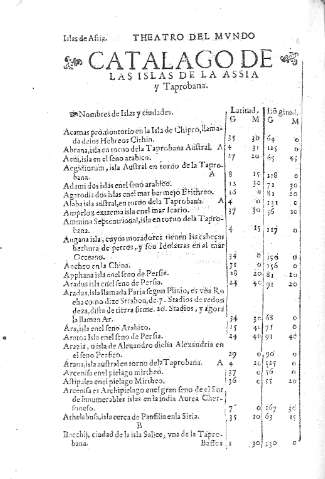 Islas de Assia. THEATRO DEL MVNDO
CATALAGO DE
LAS ISLAS DE LA ASSIA
y Taprobana.
Nombres de Islas y ciudades. Latitud. Lögitud.
G M G M
Acamas promontorio en la Isla de Chipro, llama
da de los Hebreos Cithin. 35 30 64 0
Abrana, isla en torno dela Taprobana Austral A 4 31 125 0
Acti, isla en el seno arabico. 17 20 65 45
isla Austral en torno de la Tapro-
bana. A 8 15 118 0
Adami dos islas enel seno arabico. 12 30 72 30
dos islas enel mar bermejo Erithreo. 16 0 82 20
Alaba isla austral, en torno dela Taprobana. A 4 0 131 0
Ampelo extrema isla enel mar Icario. 37 30 56 20
Ammina Septentrional, isla en torno de la Tapro-
bana. 4 15 117 0
Augana isla, cuyos moradores tienen las cabeças
hechura de perros, y son Idolatras en el mar
Occeano. 34 0 156 0
Ancheo en la China. 156 0
Apphana isla enel seno de Persia. 81 20
Aradus isla enel seno de Persia. 24 40 91 20
Aradus, isla llamada Paria segun Plinio, es vna Ro
cha como dize Strabon, de 7. Stadios de redon
deza, dista de tierra firme. 20. Stadios, y agora
la llaman Ar. 34 30 68 0
Ara, isla en el seno Arabico. 25 42 71 0
Aratna Isla enel seno de Persia. 24 40 91 40
isla de Alexandro dicha Alexandria en
el seno Persico. 29 0 90 0
Arana, isla austral en torno del Taprobana. A 4 125 0
Arcensis enel pielago mirtheo. 37 0 56 0
Astipales enel pielago Mirtheo. 36 0 55 20
Arcensis es Archipielago enel gran seno de el Sor
de innumerables islas en la india Aurea Cher-
soneso. 7 0 167 30
isla cerca de Panfilia enla Siria. 35 20 63 15
B
Bacchij, ciudad de la isla Salice, vna de la Tapro-
bana. 1 30 130 0